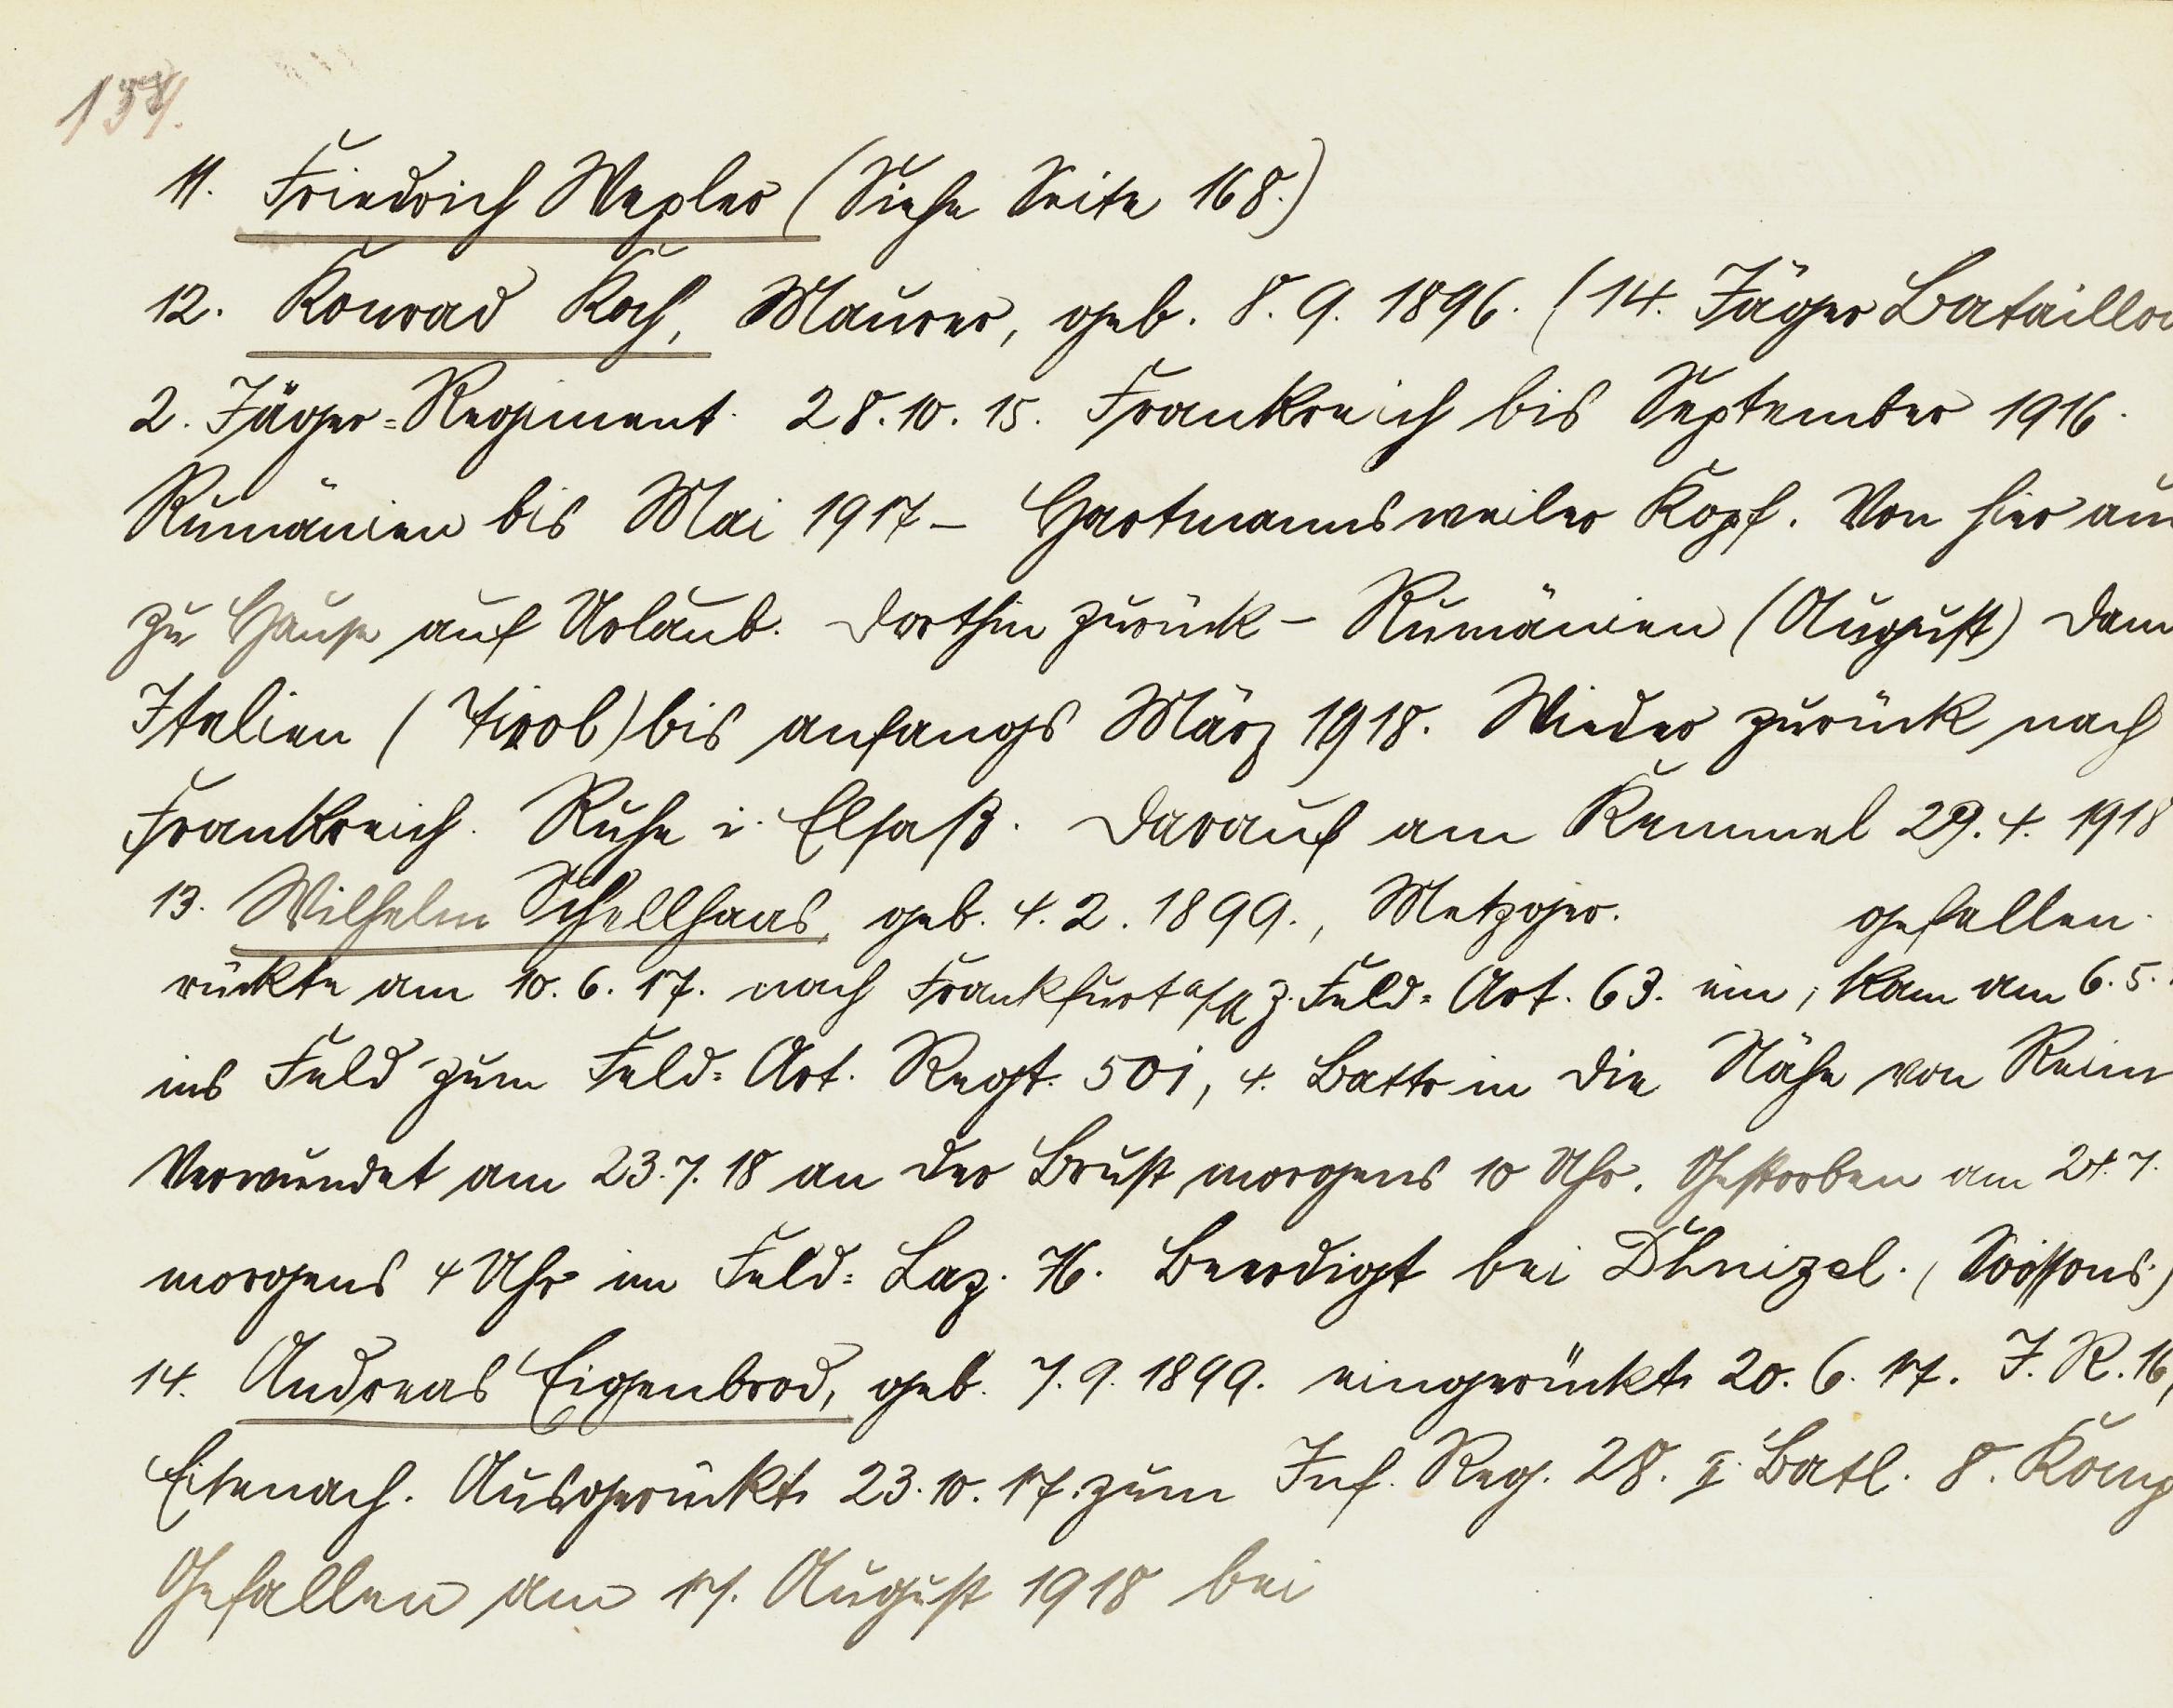 11. Friedrich Wepler (Siehe Seite 168.)
12. Konrad Koch, Maurer, geb. 8. 9. 1896. (14. Jäger Bataillon
2. Jäger=Regiment. 28. 10. 15. Frankreich bis September 1916.
Rumänien bis Mai 1917 – Hartmannsweiler Kopf. Von hier aus
zu Hause auf Urlaub. Dorthin zurück – Rumänien (August) Dann
Italien (Tirol) bis anfangs März 1918. Wieder zurück nach
Frankreich. Ruhe i. Elsaß. Darauf am Kemmel 29. 4. 1918
13. Wilhelm Schellhaas, geb. 4. 2. 1899., Metzger. gefallen.
rückte am 10. 6. 17. nach Frankfurt a/M z. Feld=Art. 63. ein, kam am 6. 5.
ins Feld zum Feld=Art. Regt. 501, 4. Battr in die Nähe von Reims
Verwundet am 23. 7. 18 an der Brust morgens 10 Uhr. Gestorben am 24. 7.
morgens 4 Uhr im Feld=Laz. 76. Beerdigt bei (Soissons.)
14. Andreas Eigenbrod, geb. 7. 9. 1899. eingerückt 20. 6. 17. J. R. 16,
Eisenach. Ausgerückt 23. 10. 17. zum Inf. Reg. 28. II. Batl. 8. Komp
Gefallen am 17. August 1918 bei